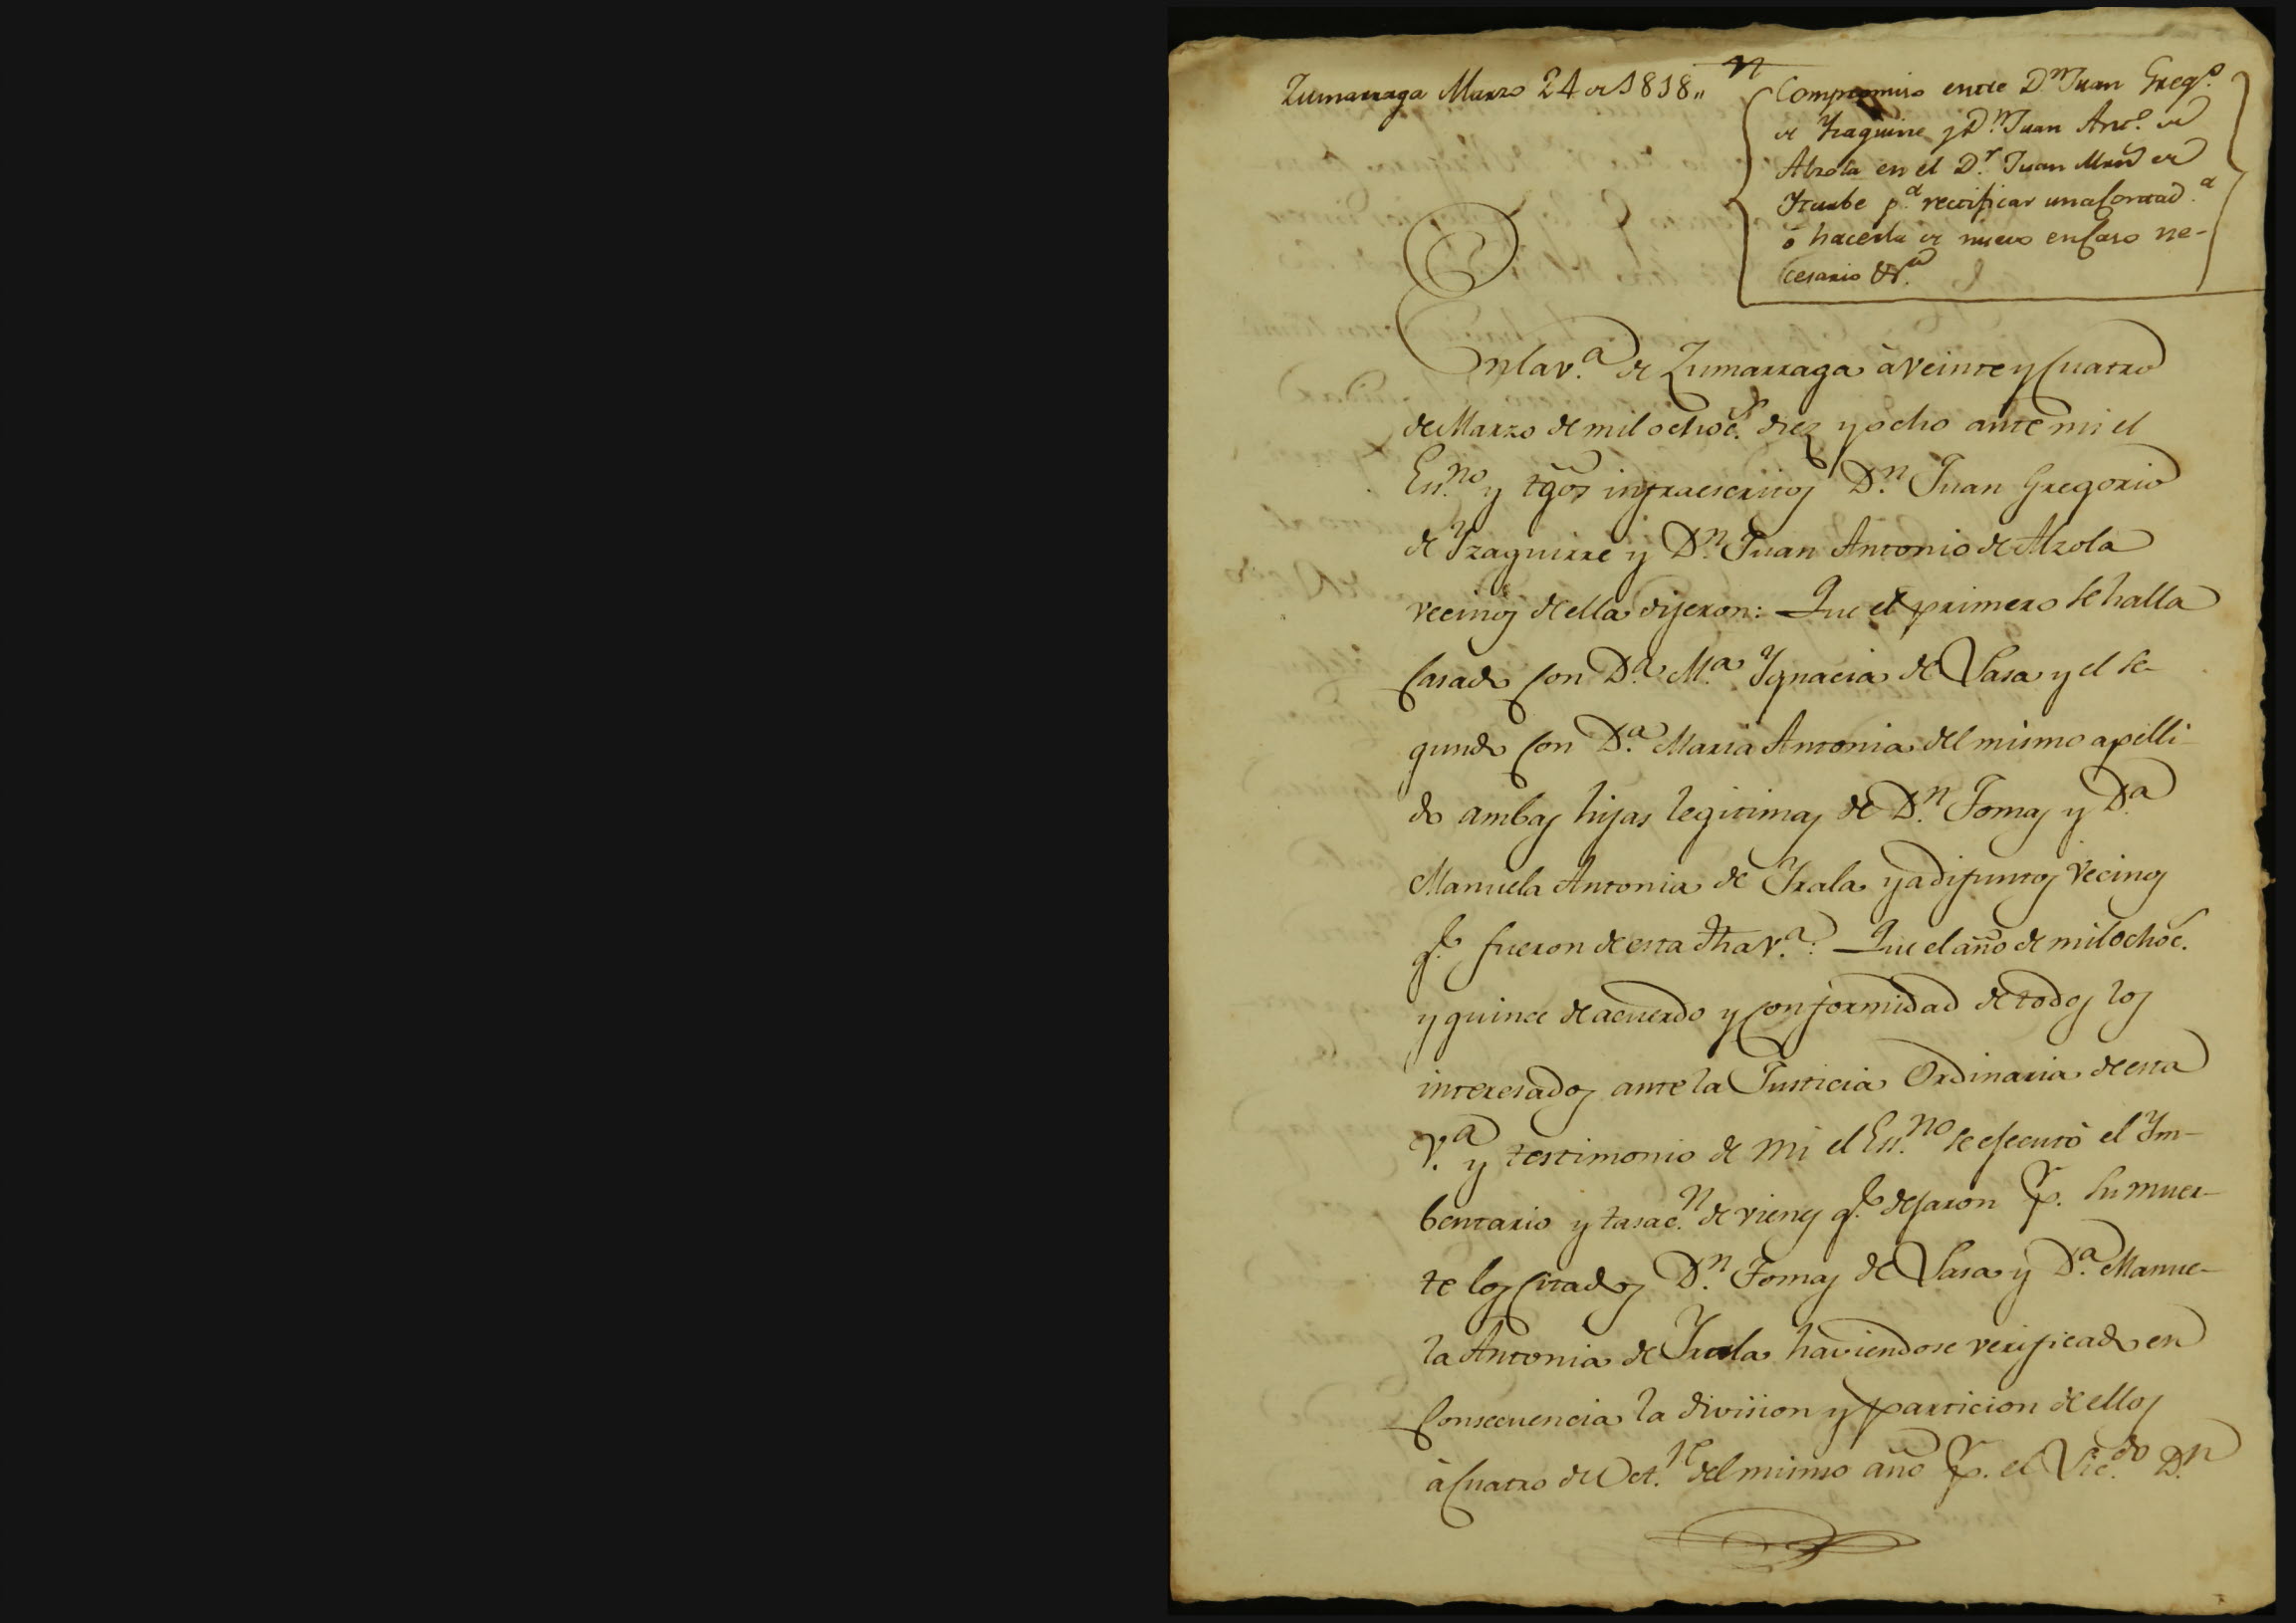 Zumarraga Marzo 24 de 1818,,
Compromiso entre D.n Juan Greg.o
de Yzaguirre y D.n Juan Ant.o de
Alzola en el D.r Juan Mrñ de
Yturbe p.a rectificar una Contad.a
ó hacerla de nuevo en Caso ne-
cesario &.a
En la v.a de Zumarraga à veinte y Cuatro
de Marzo de mil ochoc.s diez y ocho ante mi el
Es.no y tgos infraescritos D.n Juan Gregorio
de Yzaguirre y D.n Juan Antonio de Alzola
vecinos de ella dijeron: Que el primero se halla
Casado Con D.a M.a Ygnacia de Sasa y el se-
gundo Con D.a Maria Antonia del mismo apelli-
do ambas hijas legitimas de D.n Tomas y D.a
Manuela Antonia de Yrala ya difuntos vecinos
q.e fueron de esta dha v.a: Que el año de mil ochoc.s
y quince de acuerdo y Conformidad de todos los
interesados ante la Justicia Ordinaria de esta
V.a y testimonio de mi el Es.no se efecutò el Ym-
bentario y tasac.n de vienes q.e dejaron p.r su muer-
te los Citados D.n Tomas de Sasa y D.a Manue-
la Antonia de Yrala haviendose verificado en
Consecuencia la division y particion de ellos
à Cuatro de Oct.re del mismo año p.r el Lic.do D.n